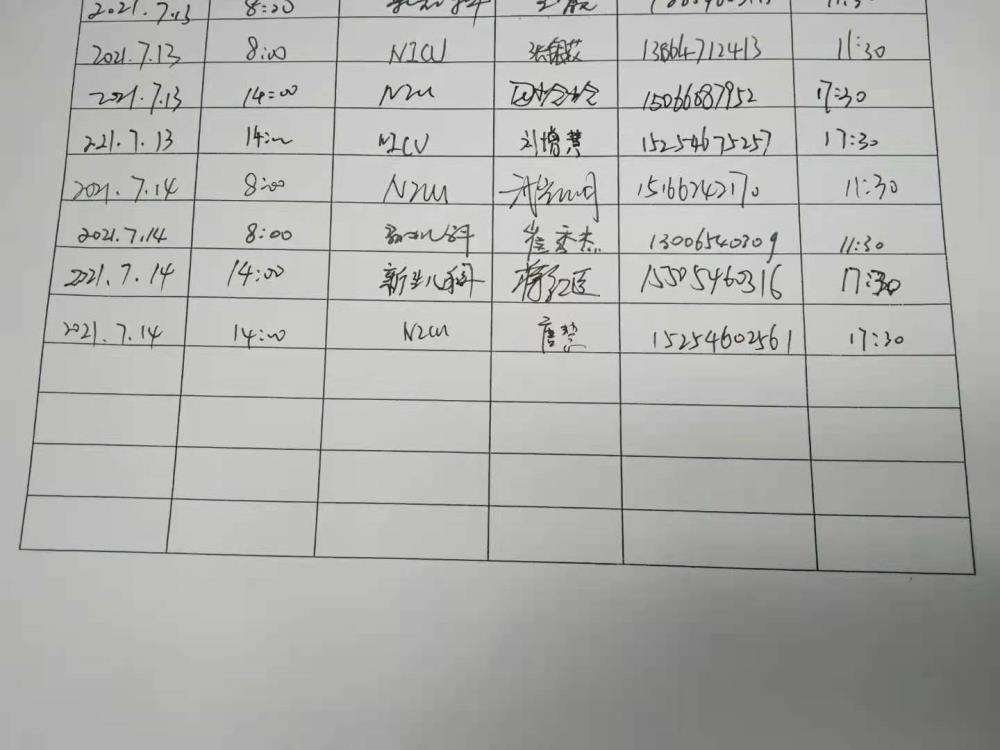 2021.7.13 8:20
2021.7.13 8:00 NICU 13864712413 11:30
2021.7.13 14:00 NICU 15066687952 17:30
2021.7.13 14:00 NICU 刘增慧 15254675257 17:30
2021.7.14 8:00 NICU 15166242170 11:30
2021.7.14 8:00 新生儿科 崔秀杰 13006540309 11:30
2021.7.14 14:00 新生儿科 蒋红臣 15505460316 17:30
2021.7.14 14:00 NICU 唐慧 15254602561 17:30